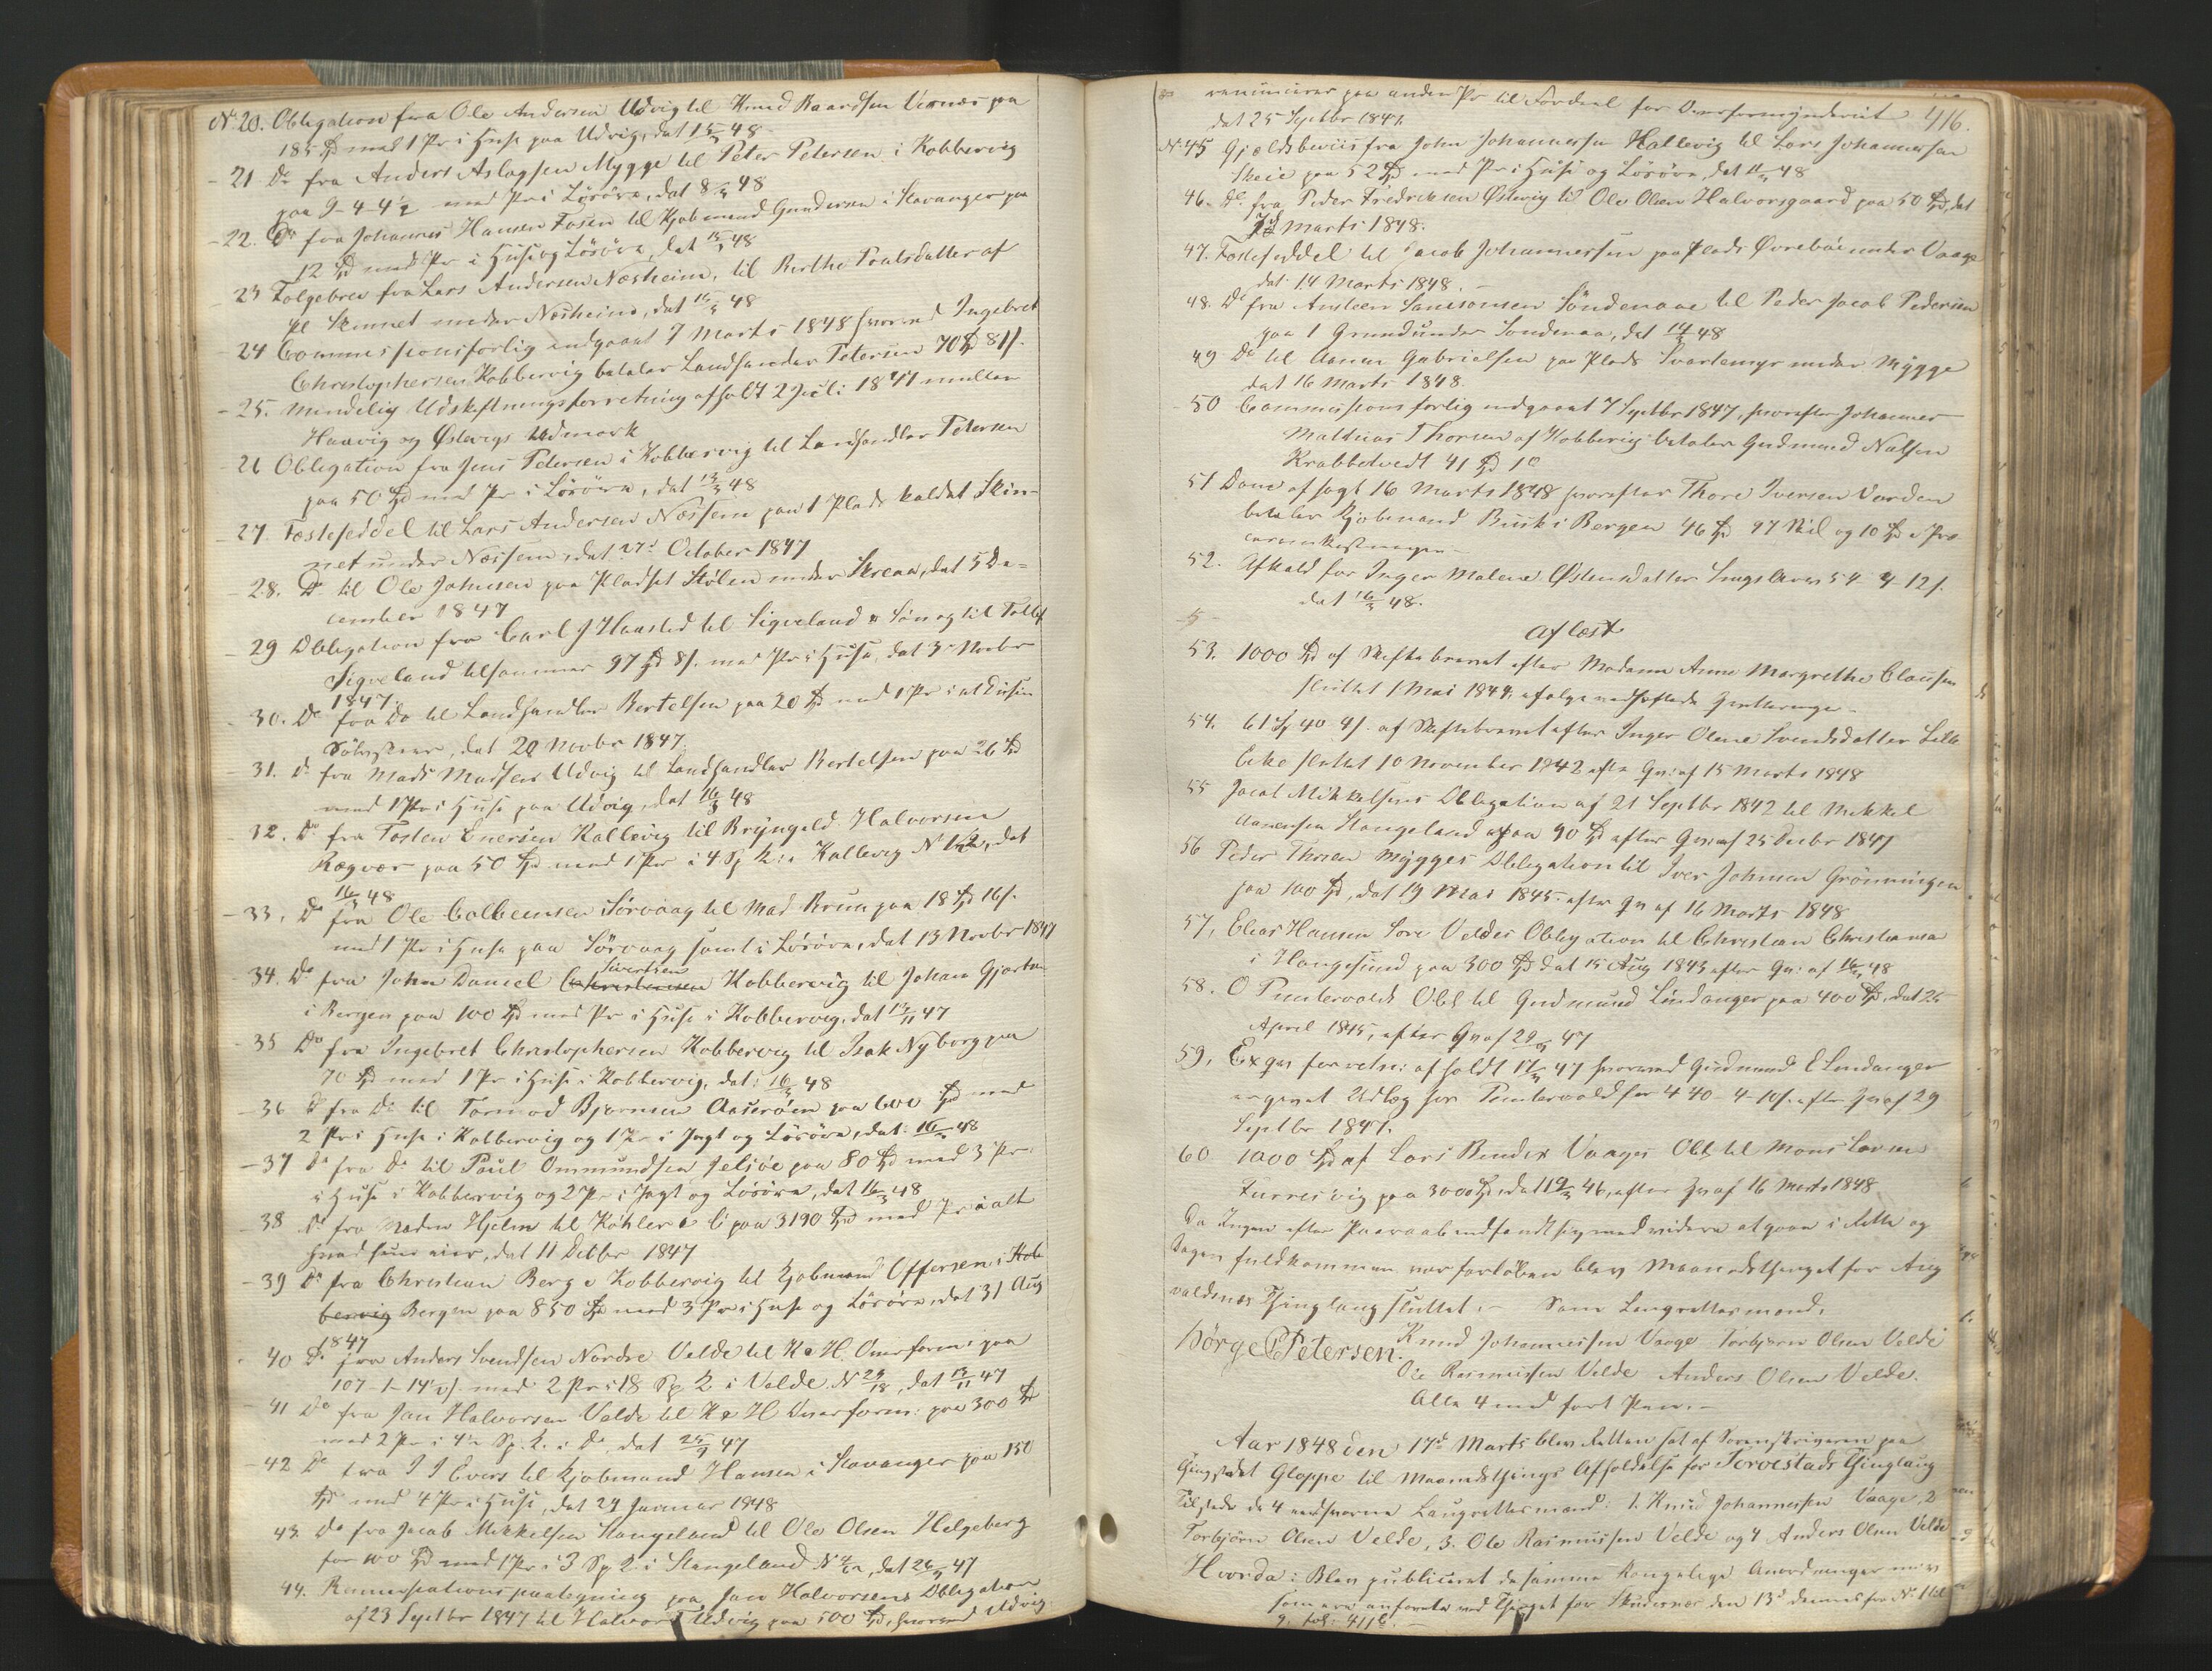 No 20. Obligation fra Ole Andersen Udvig til Knud Baardsen Vernæs paa
185 Spd med 1 Pr i Huse paa Udvig, dat 15/3 48
- 21 Do fra Anders Aslagsen Mygge til Peter Petersen i Kobbervig
paa 9-4-4½ med Pr i Lösöre, dat 8/3 48
- 22. Do fra Johannes Hansen Fosen til Kjobmand Gundersen i Stavanger paa
12 Spd med Pr i Huse og Lösöre, dat 15/3 48
- 23 Følgebrev fra Lars Andersen Næsheim, til Berthe Poulsdatter af
Pl Skinnet under Næsheim, dat 15/3 48
24 Commissionsforlig indgaaet 7 Marts 1848 hvorved Ingebret
Christophersen Kobbervig betaler Landhandler Petersen 70 Spd 81/.
- 25. Mindelig Udskiftningsforretning afholdt 2 Juli 1847 mellem
Haavig og Østevigs Udmark
- 26 Obligation fra Jens Petersen i Kobbervig til Landhandler Petersen
paa 50 Spd med Pr i Lösöre, dat 13/3 48
- 27. Festeseddel til Lars Andersen Næssem paa 1 Plads kaldet Skin-
net under Næssem, dat 27d October 1847
- 28. Do til Ole Johnsen paa Pladset Stølen under Skreaa, dat 5 De=
cember 1847
- 29 Obligation fra Carl J Haasted til Sigveland & Søn og til Tollef
Sigveland tilsammen 97 Spd 8/. med Pr i Huse, dat 3 Novbr
1847
- 30. Do fra Do til Landhandler Bertelsen paa 20 Spd med 1 Pr i et Düsin
Sölvskeer, dat 20 Novbr 1847.
- 31. Do fra Mads Madsen Udvig til Landhandler Bertelsen paa 26 Spd
med 1 Pr i Huse paa Udvig, dat 16/3 48
- 32. Do fra Tosten Enersen Kallevig til Bryngeld Halvorsen
Rægvær paa 50 Spd med 1 Pr i 4 Sp L: i Kallevig N , dat
16/3 48
- 33. Do fra Ole Colbeinsen Sörvaag til Mad Bruun paa 18 Spd 16/.
med 1 Pr i Huse paa Sörvaag samt i Lösöre, dat 13 Novbr 1847
Sivertsen
- 34. Do fra John Daniel Christensen Kobbervig til Johan Gjertsen
i Bergen paa 100 Spd med Pr i Huse i Kobbervig, dat 15/11 47
- 35 Do fra Ingebret Christophersen Kobbervig til Isak Nyborg paa
70 Spd med 1 Pr i Huse i Kobbervig, dat: 16/3 48
- 36 Do fra Do til Tormod Bjørnsen Aaserøen paa 600 Spd med
2 Pr i Huse i Kobbervig og 1 Pr i Jagt og Lösöre, dat: 16/3 48
- 37 Do fra Do til Poul Ommundsen Jelsöe paa 80 Spd med 3 Pr.
i Huse i Kobbervig og 2 Pr i Jagt og Lösöre, dat 16/3 48
- 38 Do fra Maden Hjelm til Köhler & C paa 3190 Spd med Pr i alt
hvad hun eier, dat 11 Octbr 1847
- 39 Do fra Christian Berg i Kobbervig til Kjobmand Offersen i Kob
bervig Bergen paa 850 Spd med 3 Pr i Huse og Lösöre, dat 31 Aug
1847
40 Do fra Anders Svendsen Nordre Velde til K & H Overform: paa
107-1-14½/. med 2 Pr i 18 Sp L i Velde N 29/18, dat 13/11 47
- 41 Do fra Jan Halvorsen Velde til K & H Overform: paa 300 Spd
med 2 Pr i 4½ Sp. L. i Do, dat 25/9 47
- 42 Do fra J J Evers til Kjobmand Hansen i Stavanger paa 150
Spd med 4 Pr i Huse, dat 29 Januar 1848
43. Do fra Jacob Mikkelsen Stangeland til Ole Olsen Helgeberg
for 100 Spd med 1 Pr i 3 Sp L i Stangeland N , dat 26/ 47
44. Renunciationspaategning paa Jan Halvorsens Obligation
af 23 Septbr 1847 til Halvor Udvig paa 500 Spd, hvorved Udvig
416.
renuncierer paa anden Pr til Fordeel for Overformynderiet
dat 25 Septbr 1847.
No 45 Gjældsbeviis fra John Johannesen Hallevig til Lars Johannesen
Skeie paa 52 Spd med Pr i Huse og Lösöre, dat 11/3 48
46. Do fra Peder Fredriksen Østevig til Ole Olsen Halvorsgaard paa 50 Spd, dat
Marts 1848.
47. Festeseddel til Jacob Johannessen paa Plads Øvrebøe under Vaage
dat: 14 Marts 1848. -
48. Do fra Amteen Samsonsen Söndenaae til Peder Jacob Pedersen
paa 1 Grund under Sondenaa, dat 14/3 48
49 Do til Aanen Gabrielsen paa Plads Svartemyr under Mygge
dat 16 Marts 1848.
50 Commissionsforlig indgaaet 7 Septbr 1847, hvorefter Johannes
Matthias Thorsen af Kobbervig betaler Gudmund Nielsen
Krabbetvedt 41 Spd 1o
51 Dom afsagt 16 Marts 1848 hvorefter Thore Iversen Varden
betaler Kjobmand Busk i Bergen 46 Spd 97 Skil og 10 Spd i Pro
cesomkostninger -
52. Afkald for Inger Malene Østensdatter Lings Arv 54-4-12/.
dat 16/3 48.
Aflæst
53. 1000 Spd af Skiftebrevet efter Madame Anne Margrethe Clausen
sluttet 1 Mai 1844, ifølge vedheftede Qvitteringer -
54. 61 Sp 40 4/. af Skiftebrevet efter Inger Olene Svendsdatter Lille
Eeke sluttet 10 November 1842 efter Qv: af 15 Marts 1848
55 Jacob Mikkelsens Obligation af 21 Septbr 1842 til Mikkel
Aanensen Stangeland paa 90 Spd efter Qv: af 25 Decbr 1847
56 Peder Thoresen Mygges Obligation til Iver Johnsen Grönningen
paa 100 Spd, dat 19 Mai 1845. efter Qv af 16 Marts 1848
57, Elias Hansen Søre Veldes Obligation til Christian Christiansen
i Haugesund paa 300 Spd dat 15 Aug 1843 efter Qv: af 16/3 48
58. O Punterwolds Obl til Gudmund Lindanger paa 400 Spd, dat 25
April 1845, efter Qv af 29/9 47
59, Exqv forretn: afholdt 17/ 47 hvorved Gudmund E Lindanger
er gjort Udlæg hos Punterwold for 440-4-10/. efter Qv af 29
Septbr 1847.
60 1000 Spd af Lars Bendix Vaages Obl til Mons Larsen
Furresvig paa 3000 Spd, dat 19/ 46, efter Qv af 16 Marts 1848
Da Ingen efter Paaraab indfandt sig med videre at gaae i Rette og
Dagen fuldkommen var forløben blev Maanedsthinget for Aug
valdsnæs Thinglaug sluttet. - Som Laugrettesmænd.
Börge P Petersen. Knud Johannessen Vaage Torbjørn Olsen Velde
Ole Rasmussen Velde Anders Olsen Velde.
Alle 4 med ført Pen. -
Aar 1848 den 17d Marts blev Retten sat af Sorenskriveren paa
Thingstedet Gloppe til Maanedsthings Afholdelse for Torvestads Thinglaug
Tilstede de 4 edsvorne Laugrettesmænd: 1. Knud Johannessen Vaage, 2
Torbjörn Olsen Velde, 3. Ole Rasmussen Velde og 4 Anders Olsen Velde
Hvorda: Blev publiceret de samme Kongelige Anordninger m: v
som ere anførte ved Thinget for Skudesnæs den 13d dennes fra No 1 til
9, fol: 411b. -